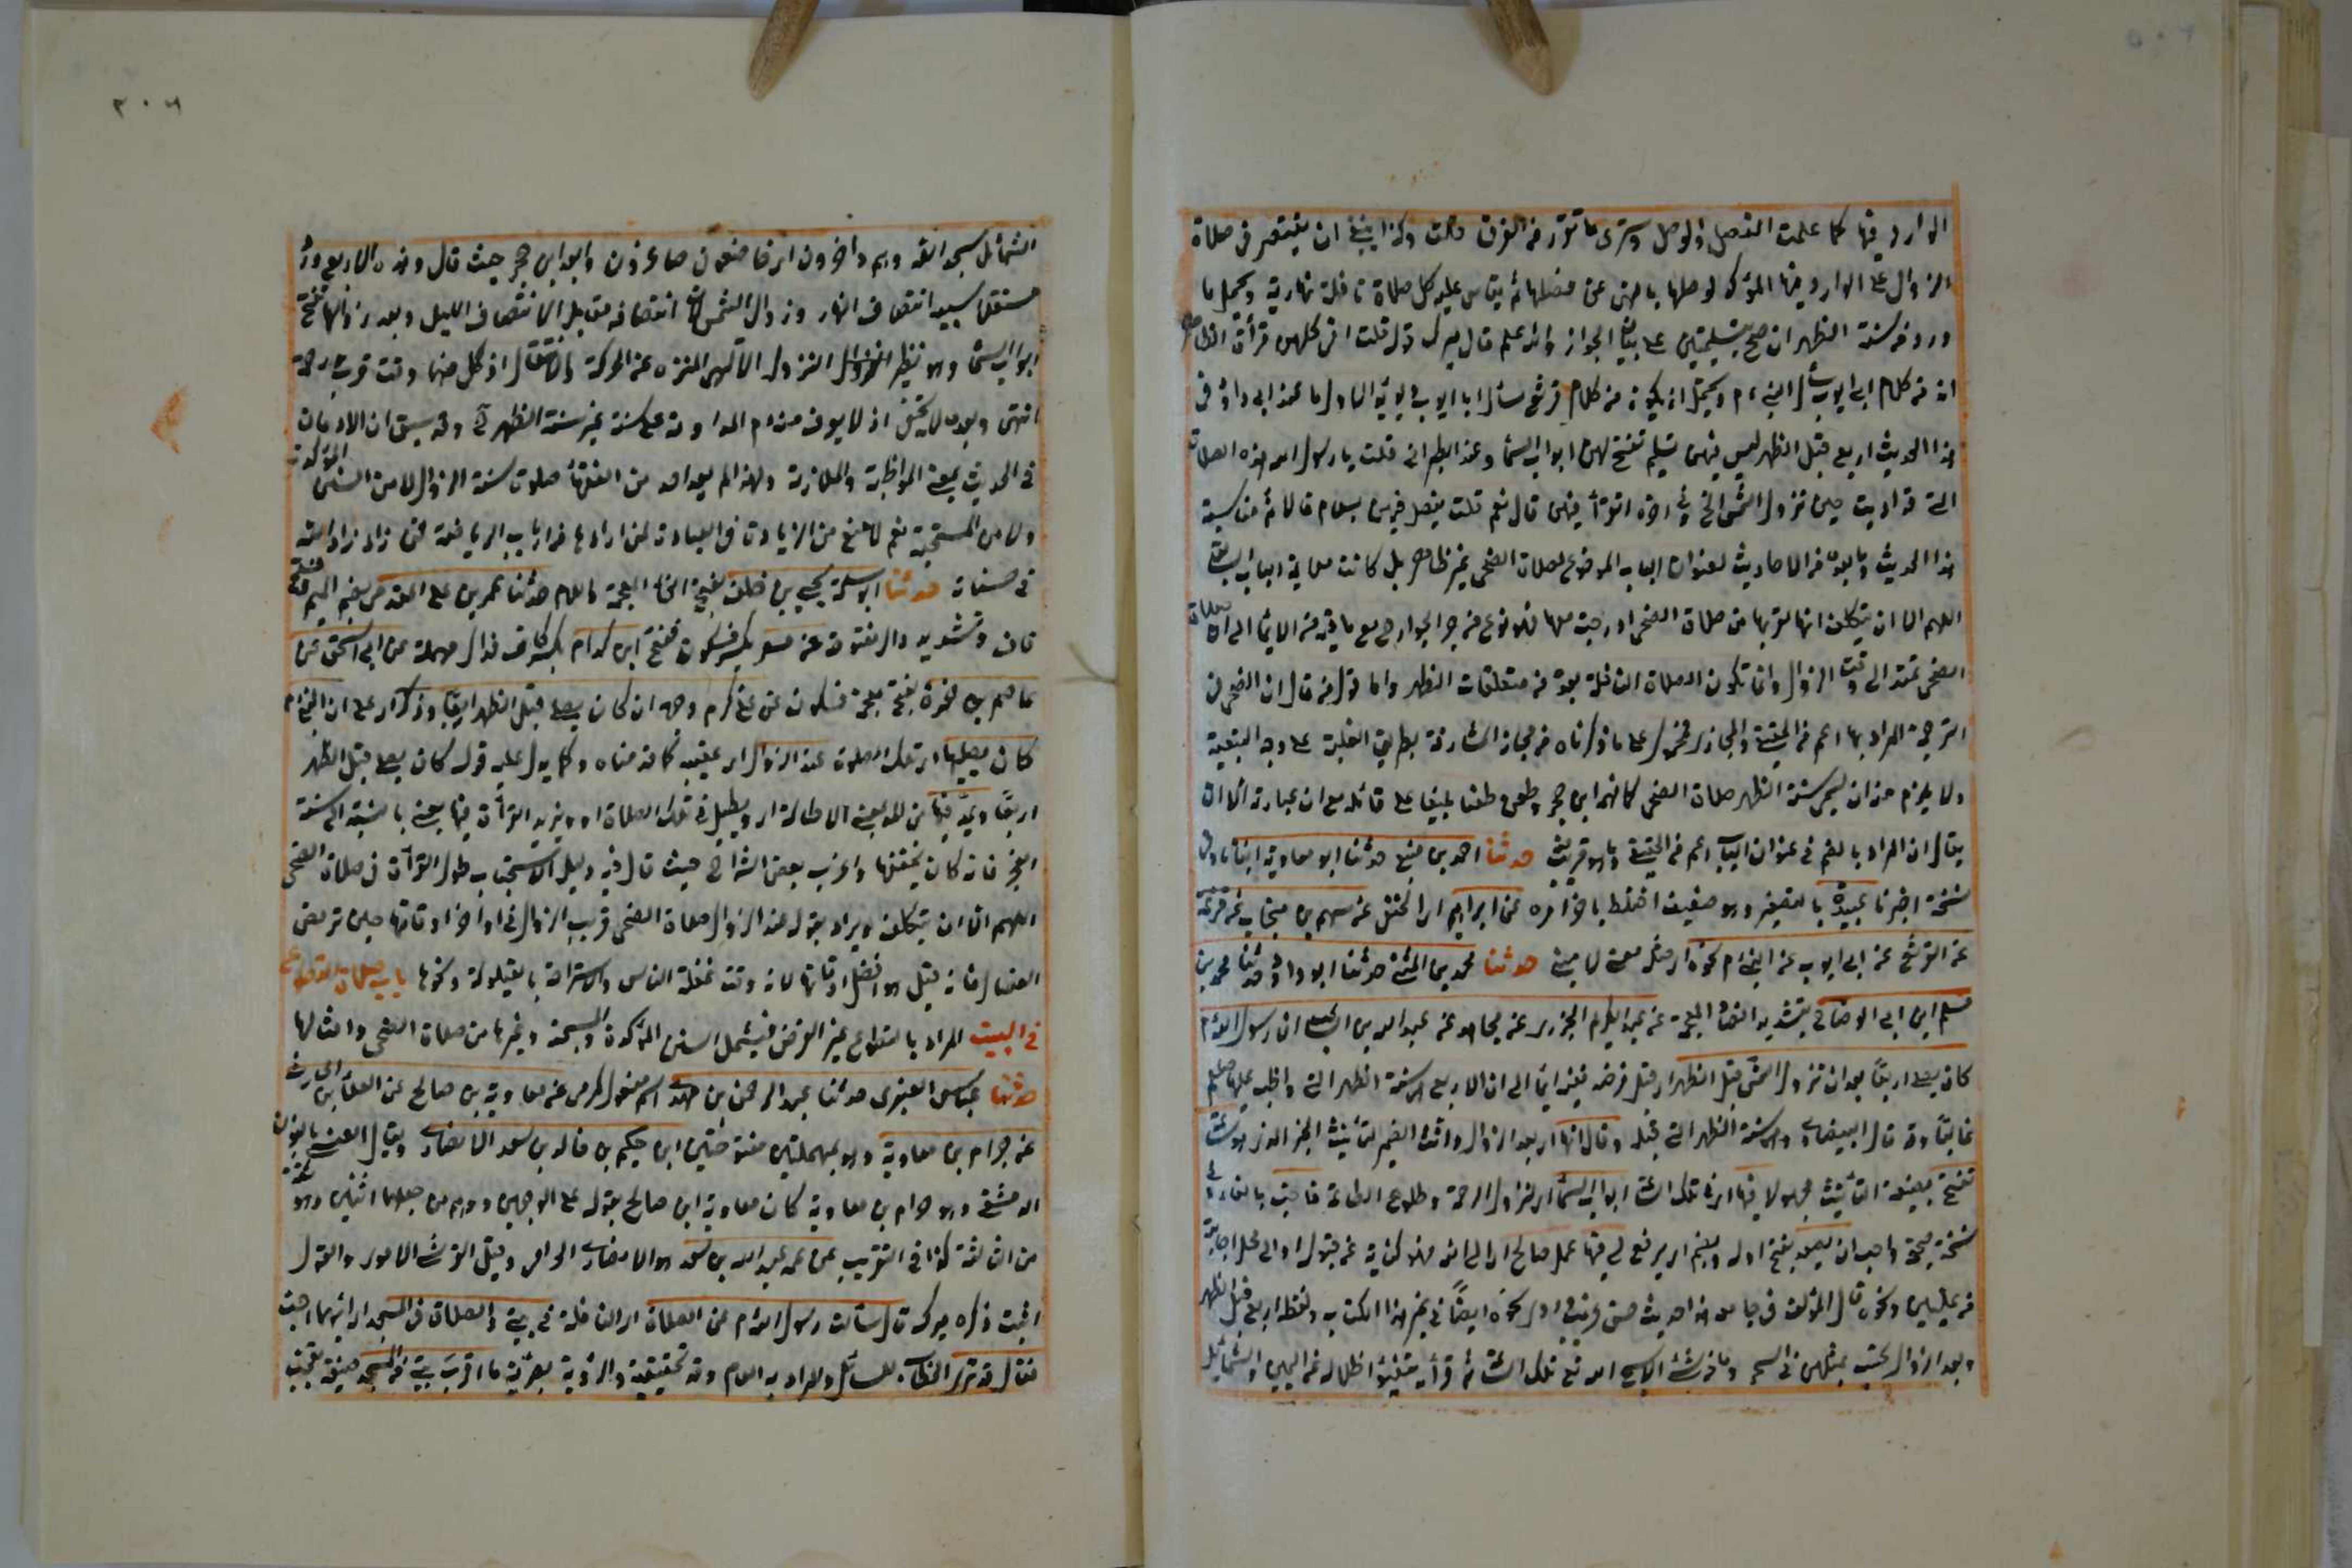 الوارد فيها كما علمت الفصل والوصل وسترى ما تقرر من الفرق قالت وكذا ينبغي ان يقتصر في صلاة
الزوال على الوارد فيها المؤكد لوصلها بالنهي عن فصلها ثم يقاس عليه كل صلاة نافلة نهارية ويحمل ما
ورد في سنة الظهر ان صح بتسليمتين على بيان الجواز والله اعلم قال ميرك قوله قلت افي كلهن قرأة الظاهر
انه من كلام ابي ايوب سأل النبي عم ويحتمل ان يكون من كلام قرثع سأل ابا ايوب ويؤيد الاول ما عند ابي داود في
هذا الحديث اربع قبل الظهر ليس فيهن تسليم تفتح لهن ابواب السما وعند الطبراني قلت يا رسول الله هذه الصلاة
التي قد ادمت حين تزول الشمس الخ وفي اخره اتقرأ فيهن قال نعم قلت يفصل فيهن بسلام قال لا ثم مناسبة
هذا الحديث وما بعده من الاحاديث لعنوان الباب الموضوع لصلاة الضحى غير ظاهر بل كانت ملايمة الباب السابق
اللهم الا ان يتكلف انها لقربها من صلاة الضحى ادرجت معها فهو نوع من جر الجوار مع ما فيه من الايما الى ان صلاة
الضحى تمتد الى وقت الزوال وانما تكون الصلاة النافلة بعده من متعلقات الظهر واما قول من قال ان الضحى في
الترجمة المراد بها اعم من الحقيقة والمجاز فمحمول على ما ذكرناه من مجاز المشارفة بطريق الغلبة على وجه التبعية
ولا يلزم منه ان يسمى سنة الظهر صلاة الضحى كما فهم ابن حجر وطعن طعنا بليغا على قائله مع ان عبارته الا ان
يقال ان المراد بالضحى في عنوان الباب اعم من الحقيقة وما هو قريب منه حدثنا احمد بن منيع حدثنا ابو معاوية انبأنا وفي
نسخة اخبرنا عبيدة بالتصغير وهو ضعيف اختلط باخر امره عن ابراهيم اي النخعي عن سهم بن منجاب عن قزعة
عن القرثع عن ابي ايوب عن النبي عم نحوه اي مثله معنى لا مبنى حدثنا محمد بن المثنى حدثنا ابو داود حدثنا محمد بن
مسلم ابن ابي الوضاح بتشديد الضاد المعجمة عن عبد الكريم الجزري عن مجاهد عن عبد الله بن السائب ان رسول الله عم
كان يصلي اربعا بعد ان تزول الشمس قبل الظهر اي قبل فرضه ففيه ايما الى ان الاربع هي سنة الظهر التي واظب عليها صلعم
غالبا وقد قال البيضاوي هي سنة الظهر التي قبله وقال انها اي بعد الزوال وانث الضمير لتأنيث الخبر الذي هو ساعة
تفتح بصيغة التأنيث مجهولا فيها اي في تلك الساعة ابواب السما اي لنزول الرحمة وطلوع الطاعة فاحب بالفاء وفي
نسخة صحيحة واحب ان يصعد بفتح اوله ويضم اي يرفع لي فيها عمل صالح اي الى الله فهو كناية عن قبوله او الى محل اجابته
من عليين ونحوه قال المؤلف في جامعه هذا حديث حسن غريب روى نحوه ايضا في غير هذا الكتاب ولفظه اربع قبل الظهر
وبعد الزوال تحسب بمثلهن في السحر وما من شئ الا يسبح الله في تلك الساعة ثم قرأ يتفيئوا ظلاله عن اليمين والشمائل
الشمائل سجدا لله وهم داخرون اي خاضعون صاغرون وابعد ابن حجر حيث قال وهذه الاربع ورد
مستقل سببه انتصاف النهار وزوال الشمس لان انتصافه مقابل لانتصاف الليل وبعد زوالها تفتح
ابواب السما وهو نظير النزول الالهي المنزه عن الحركة والانتقال اذ كل منهما وقت قرب رحمة
انتهى وبعده لا يخفى اذ لا يعرف منه عم المداومة على سنة غير سنة الظهر وقد سبق ان الادمان
في الحديث بمعنى المواظبة والملازمة ولهذا لم يعد احد من الفقهاء صلوة سنة الزوال لا من السنن المؤكدة
ولا من المستحبة نعم لا منع من الزيادة في العبادة لمن ارادها من ارباب الرياضة فمن زاد زاد الله
في حسناته حدثنا ابو سلمة يحيى بن خلف بفتح الخاء المعجمة واللام حدثنا عمر بن علي المقدمي بضم الميم وفتح
قاف وتشديد دال مفتوحة عن مسعر بكسر فسكون ففتح ابن كدام بكسر كاف فدال مهملة عن ابي اسحق عن
عاصم بن ضمرة بفتح معجمة فسكون عن علي كرم وجهه انه كان يصلي قبل الظهر اربعا وذكر اي علي ان النبي عم
كان يصليها اي تلك الصلوة عند الزوال اي عقيبه كما قدمناه وكما يدل عليه قوله كان يصلي قبل الظهر
اربعا ويمد فيها من المد بمعنى الاطالة اي ويطيل في تلك الصلاة او ويزيد القرأة فيها يعني بالنسبة الى سنة
الفجر فانه كان يخففها واغرب بعض الشراح حيث قال فيه دليل لاستحباب طول القرأة في صلاة الضحى
اللهم الا ان يتكلف ويراد بقوله عند الزوال صلاة الضحى قريب الزوال في اواخر اوقاتها حين ترمض
الفصال فانه قيل هو افضل اوقاتها لانه وقت غفلة الناس والاستراحة بالقيلولة ونحوها باب صلاة التطوع
في البيت المراد بالتطوع غير الفرض فيشمل السنن المؤكدة والمستحبة وغيرها من صلاة الضحى وامثالها
حدثنا عباس العنبري حدثنا عبد الرحمن بن مهدي اسم مفعول كمرمي عن معاوية بن صالح عن العلاء بن الحارث
عن حرام بن معاوية وهو بمهملتين مفتوحتين ابن حكيم بن خالد بن سعد الانصاري ويقال العنسي بالنون
الدمشقي وهو حرام بن معاوية كان معاوية ابن صالح يقوله على الوجهين ووهم من جعلهما اثنين وهو ثقة
من الثالثة كذا في التقريب عن عمه عبد الله بن سعد هو الانصاري الحرامي وقيل القرشي الاموي والاول
اثبت ذكره ميرك قال سألت رسول الله عم عن الصلاة اي النافلة في بيتي والصلاة في المسجد اي ايهما احب
فقال قد ترى الخطاب للسائل والمراد به العام وقد تحقيقية والرؤية بصرية ما اقرب بيتي من المسجد صيغة تعجب